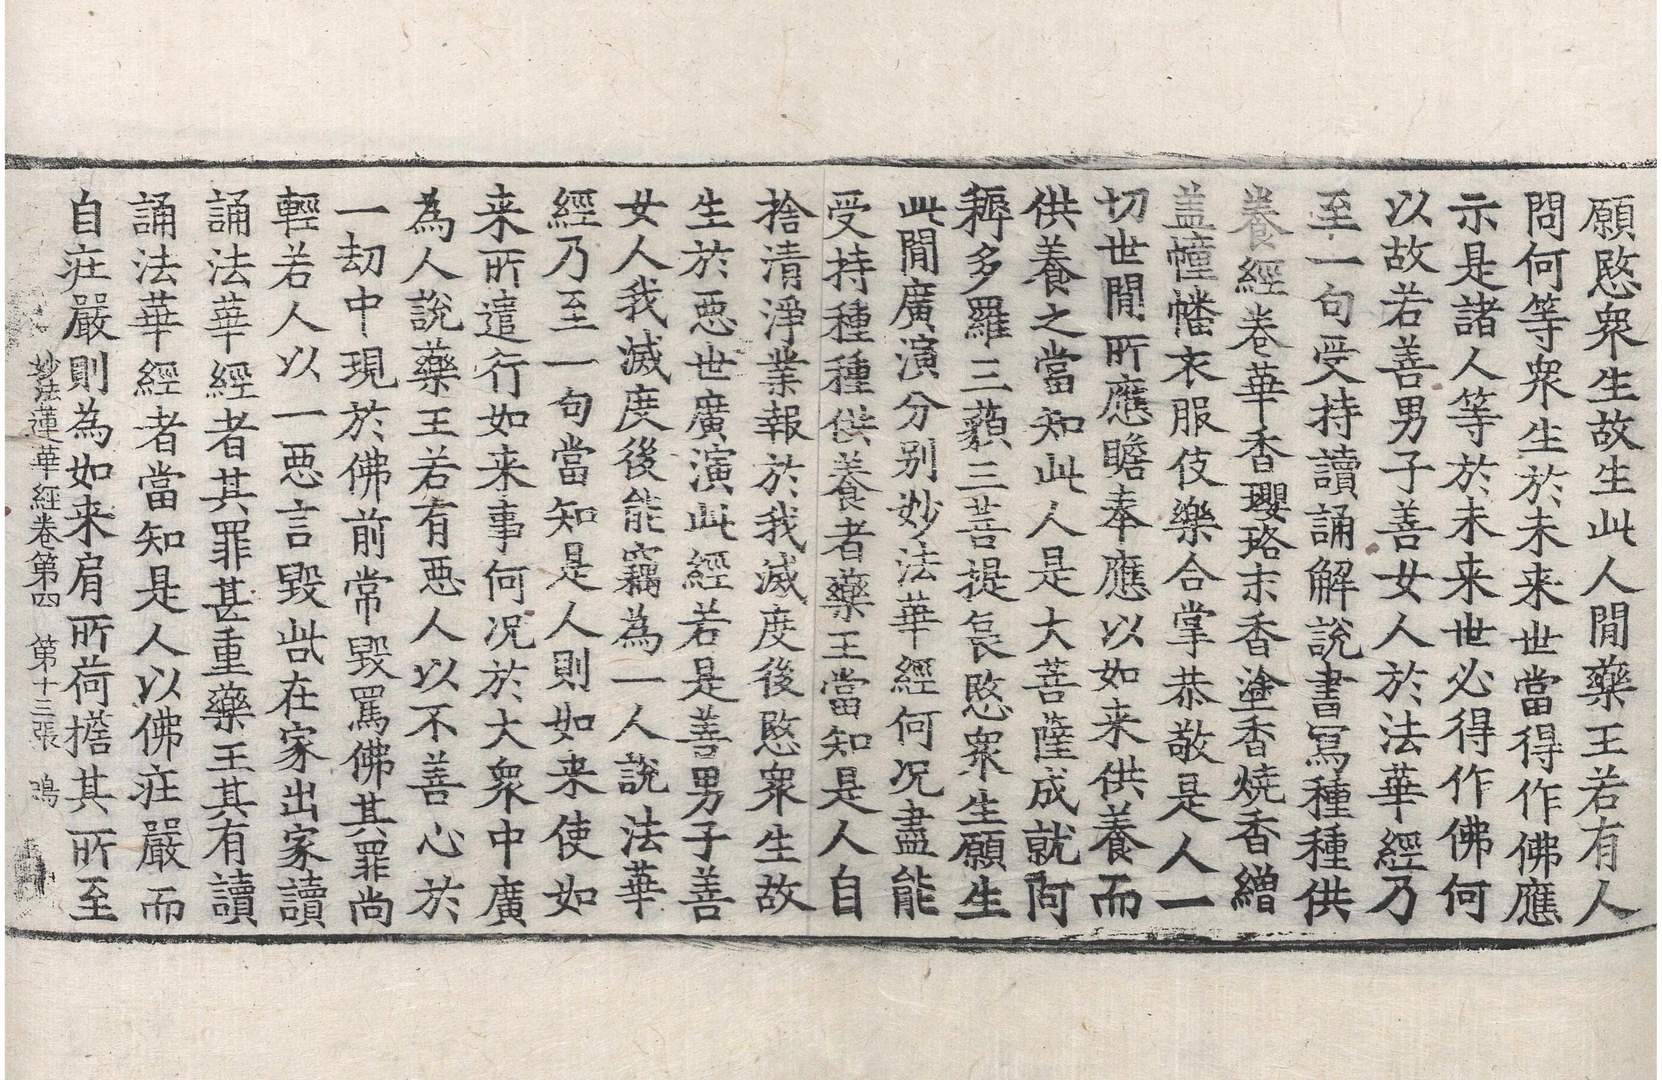 願愍衆生故生此人閒藥王若有人
問何等衆生於未来世當得作佛應
示是諸人等於未来世必得作佛何
以故若善男子善女人於法華經乃
至一句受持讀誦解說書寫種種供
養經卷華香瓔珞末香塗香燒香繒
盖幢幡衣服伎樂合掌恭敬是人一
切世閒所應瞻奉應以如来供養而
供養之當知此人是大菩薩成就阿
耨多羅三藐三菩提哀愍衆生願生
此閒廣演分別妙法華經何况盡能
受持種種供養者藥王當知是人自
捨清淨業報於我滅度後愍衆生故
生於惡世廣演此經若是善男子善
女人我滅度後能竊為一人說法華
經乃至一句當知是人則如来使如
来所遣行如来事何况於大衆中廣
為人說藥王若有惡人以不善心於
一劫中現於佛前常毀罵佛其罪尚
輕若人以一惡言毀呰在家出家讀
誦法華經者其罪甚重藥王其有讀
誦法華經者當知是人以佛莊嚴而
自莊嚴則為如来肩所荷擔其所至
妙法蓮華經卷第四 第十三張 鳴